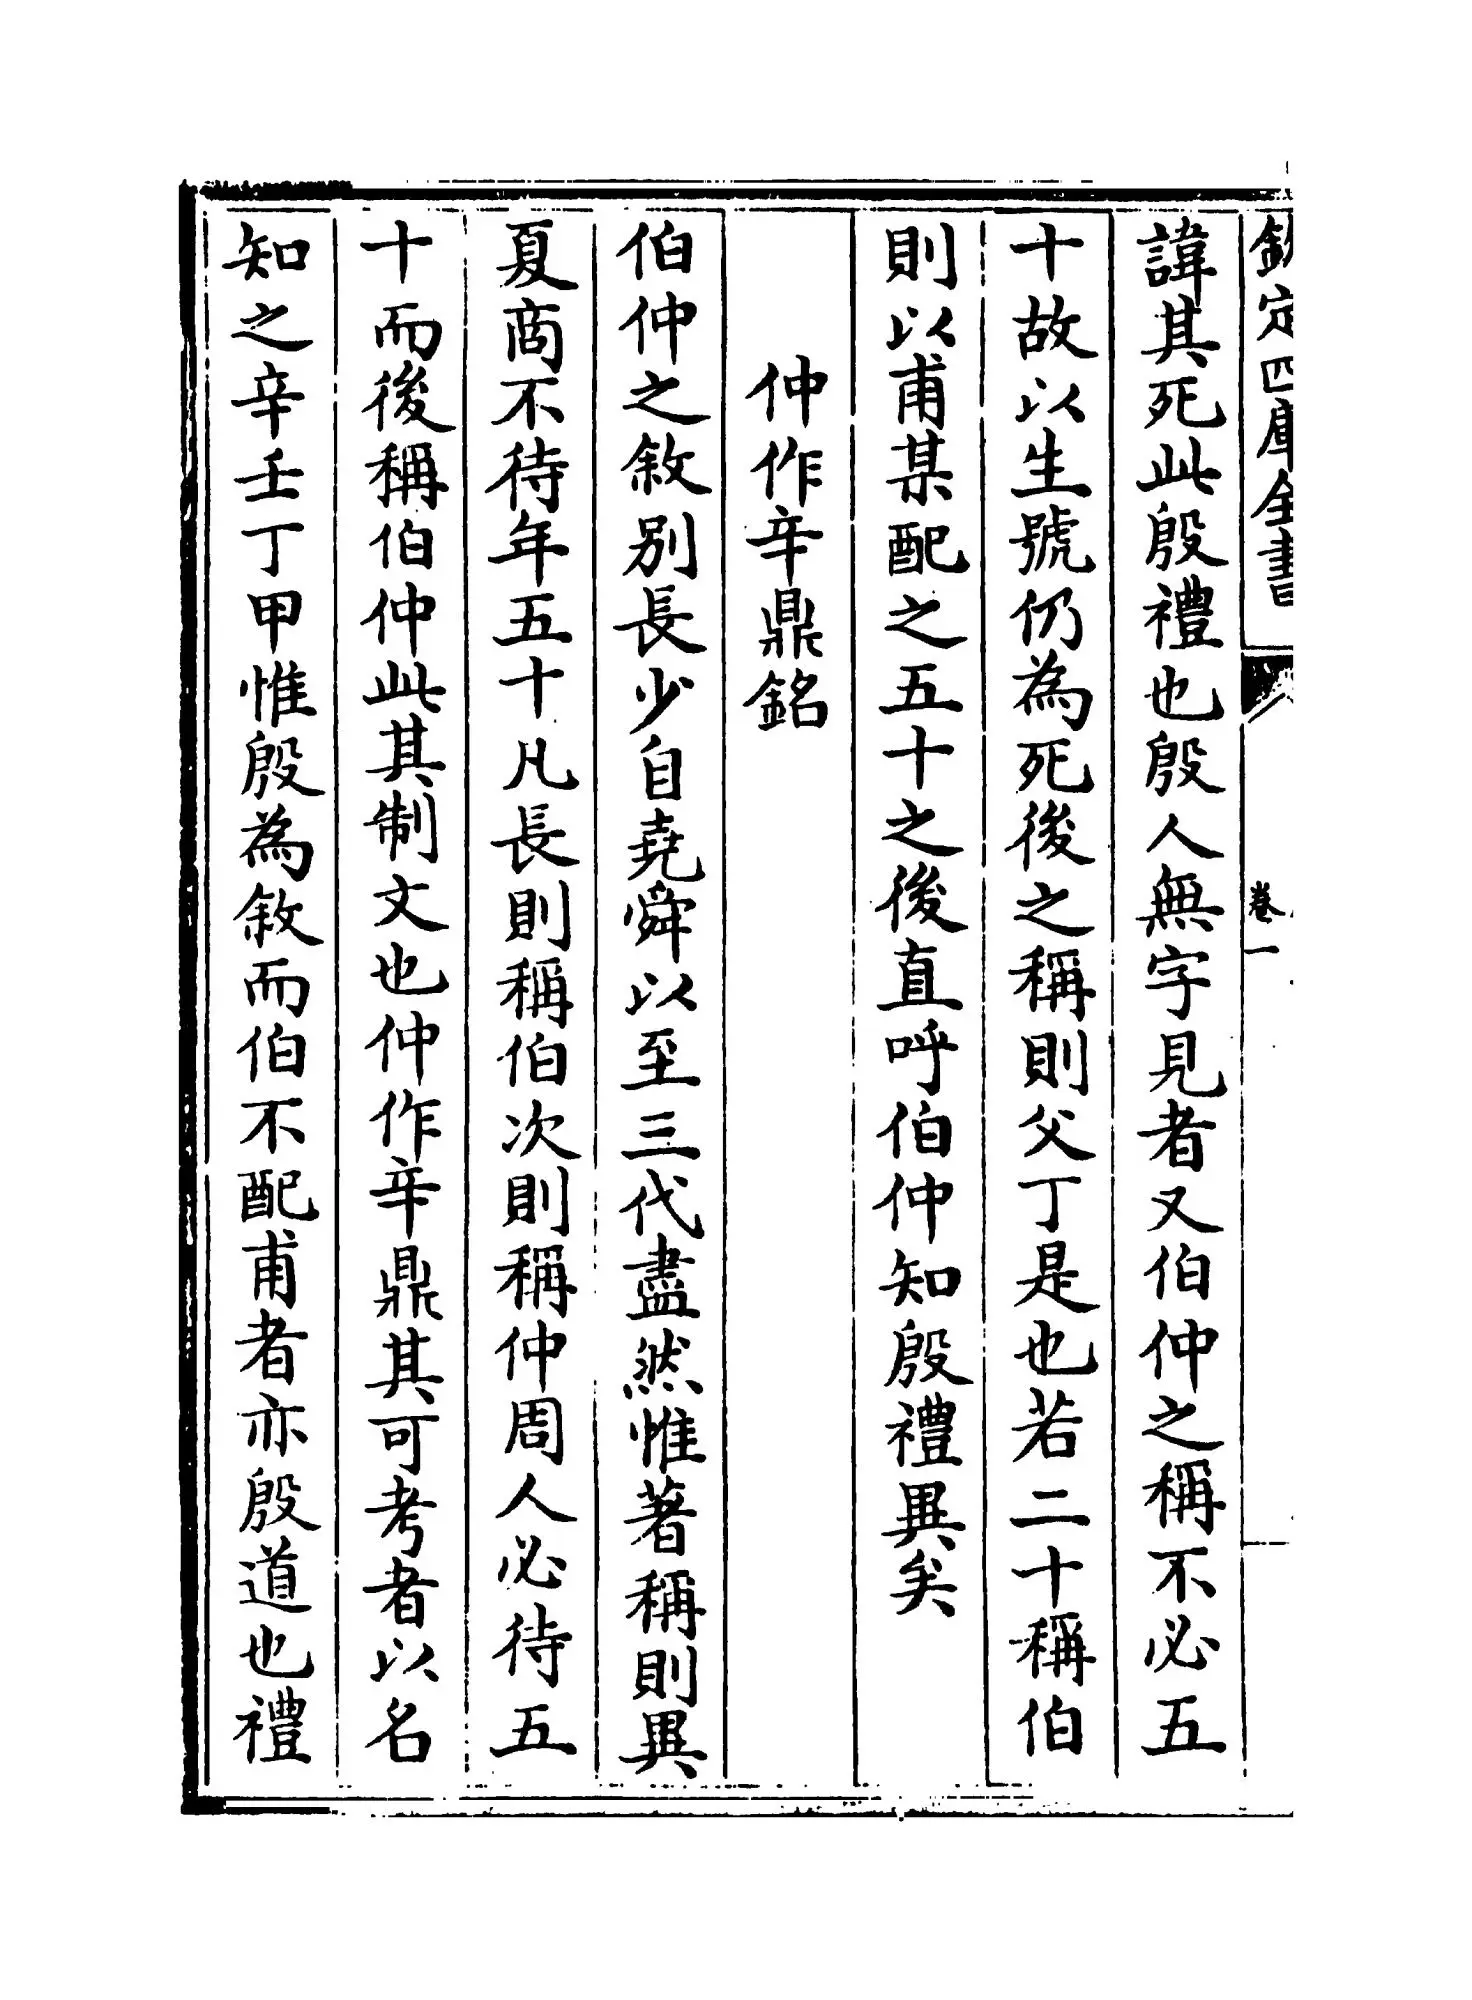 欽定四庫全書
卷一
諱其死此殷禮也殷人無字見者又伯仲之稱不必五
十故以生號仍為死後之稱則父丁是也若二十稱伯
則以甫某配之五十之後直呼伯仲知殷禮異矣
仲作辛鼎銘
伯仲之敘别長少自堯舜以至三代盡然惟著稱則異
夏商不待年五十凡長則稱伯次則稱仲周人必待五
十而後稱伯仲此其制文也仲作辛鼎其可考者以名
知之辛壬丁甲惟殷為敘而伯不配甫者亦殷道也禮